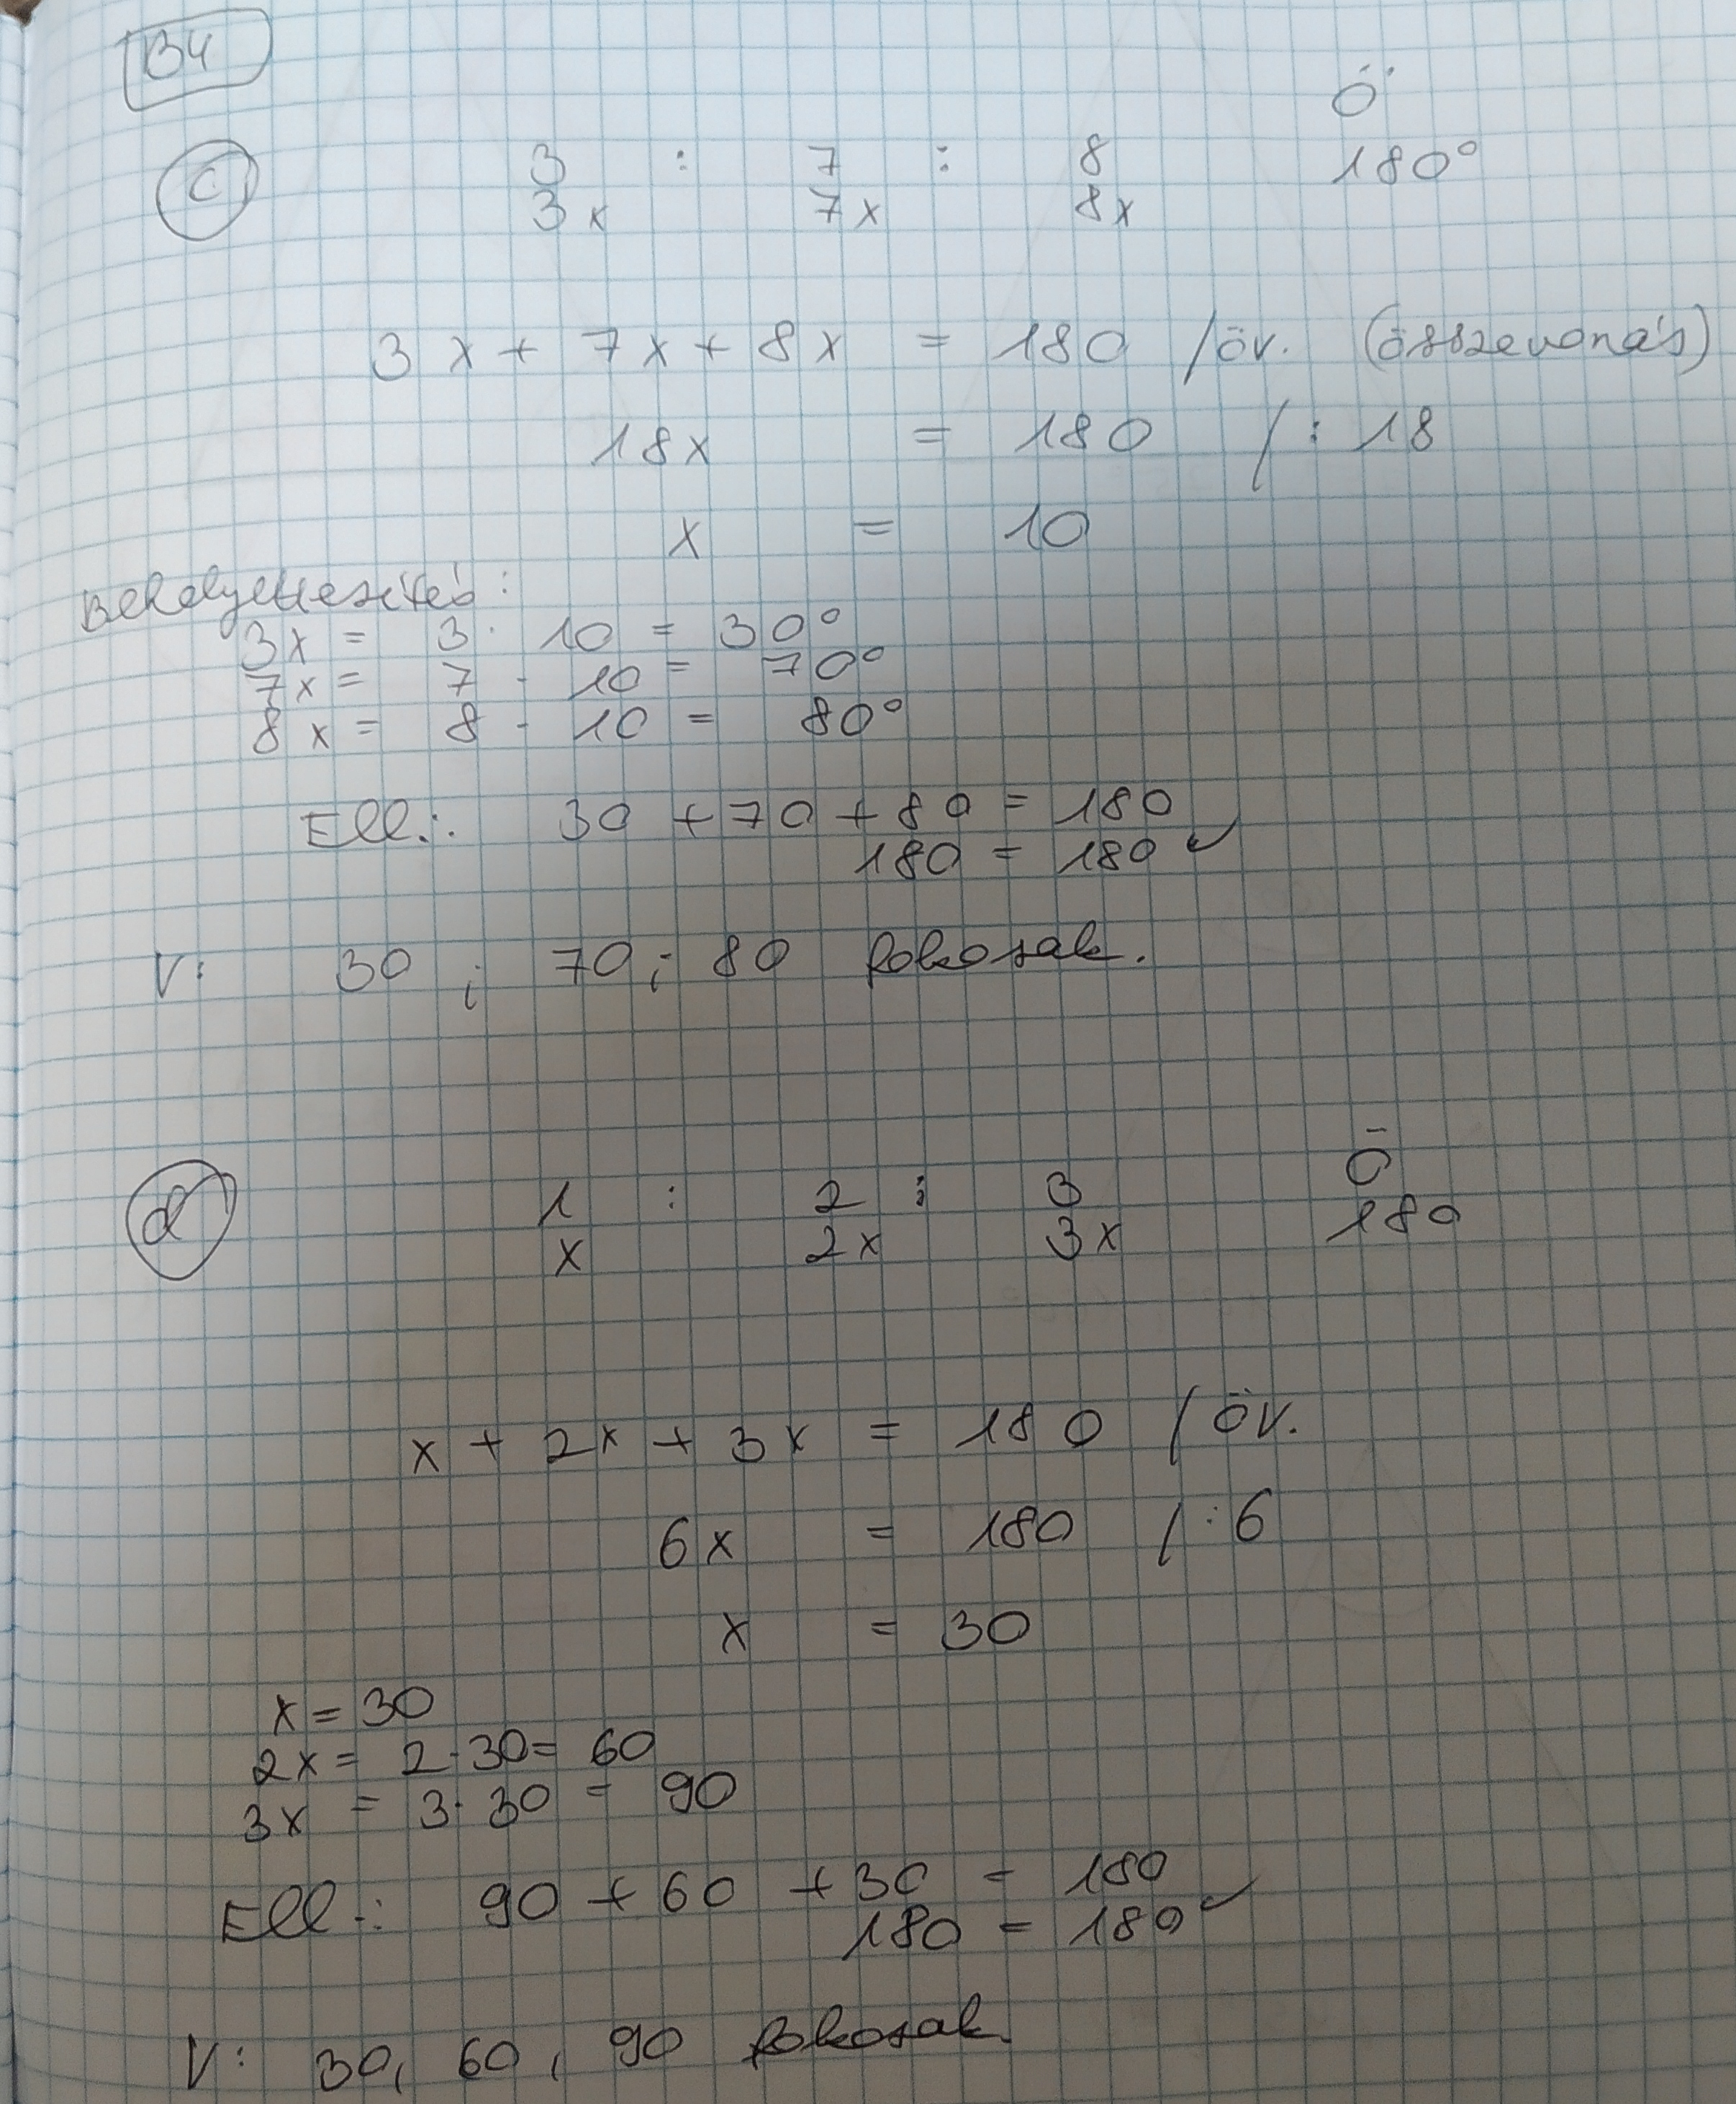 B4
Ö
c
3 : 7 : 8 180°
3x 7x 8x
3x + 7x + 8x = 180 /öv. (összevonás)
18x = 180 /: 18
x = 10
Behelyettesítés:
3x = 3 · 10 = 30°
7x = 7 · 10 = 70°
8x = 8 · 10 = 80°
Ell.: 30 + 70 + 80 = 180
180 = 180 ✓
V: 30 ; 70 ; 80 fokosak.
Ö
d
1 : 2 : 3 180
x 2x 3x
x + 2x + 3x = 180 /öv.
6x = 180 /: 6
x = 30
x = 30
2x = 2 · 30 = 60
3x = 3 · 30 = 90
Ell.: 90 + 60 + 30 = 180
180 = 180 ✓
V: 30, 60, 90 fokosak.